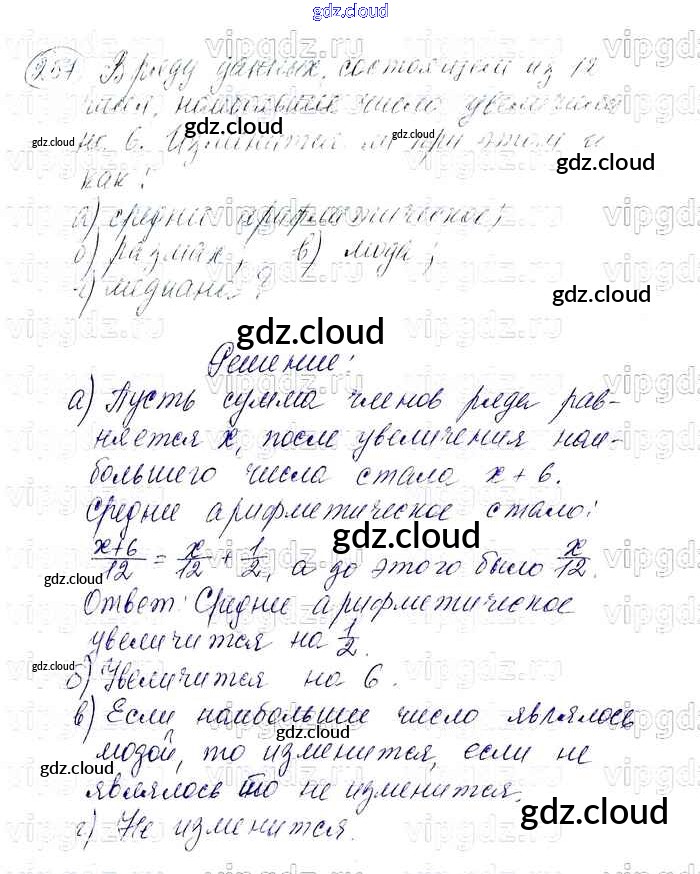 gdz.cloud
257 В ряду данных, состоящем из 12
чисел, наибольшее число увеличили
на 6. Изменится ли при этом и
как:
а) среднее арифметическое;
б) размах; в) мода;
г) медиана?
Решение:
а) Пусть сумма членов ряда рав-
няется x, после увеличения наи-
большего числа стала x + 6.
Среднее арифметическое стало:
(x+6)/12 = x/12 + 1/2, а до этого было x/12.
Ответ: Среднее арифметическое
увеличится на 1/2.
б) Увеличится на 6.
в) Если наибольшее число являлось
модой, то изменится, если не
являлось то не изменится.
г) Не изменится.